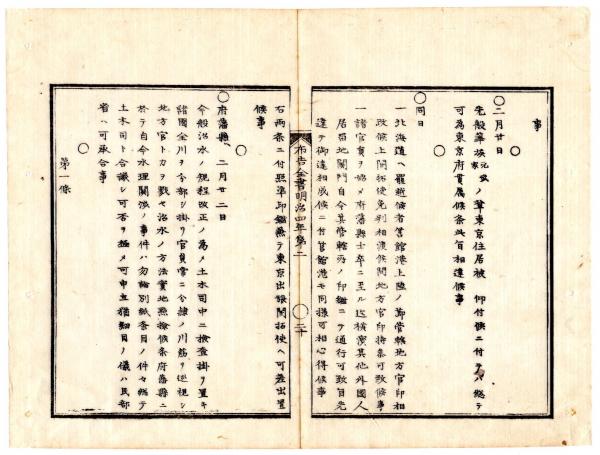 事
○二月廿日○
先般華族 元武家 ノ輩東京住居被 仰付候ニ付テハ総テ
可為東京府貫属候条此旨相達候事
○同日○
一北海道ヘ罷越候者箱館港上陸ノ節管轄地方官印相
改候上開拓使免判相渡候間地方官印持参可致候事
一諸官員ヲ始メ府藩県士卒ニ至ル迄横濱其他外國人
居留地関門自今其管轄所ノ印鑑ニテ通行可致旨先
達テ御達相成候ニ付箱館港モ同様可相心得候事
布告全書明治四年第二
二十
右両条ニ付照準印鑑兼テ東京出張開拓使ヘ可差出置
候事
○府藩縣ヘ 二月廿二日○
今般治水ノ規程改正ノ為メ土木司中ニ検査掛ヲ置キ
諸國全川ヲ分部シ掛リ官員常ニ分隷ノ川筋ヲ巡視シ
地方官ト力ヲ戮セ治水ノ方法實地點検候条府藩縣ニ
於テ自今水理関渉ノ事件ハ勿論別紙条目ノ件々総テ
土木司ト合議シ可否ヲ極メ可申立猶細目ノ儀ハ民部
省ヘ可承合事
第一條